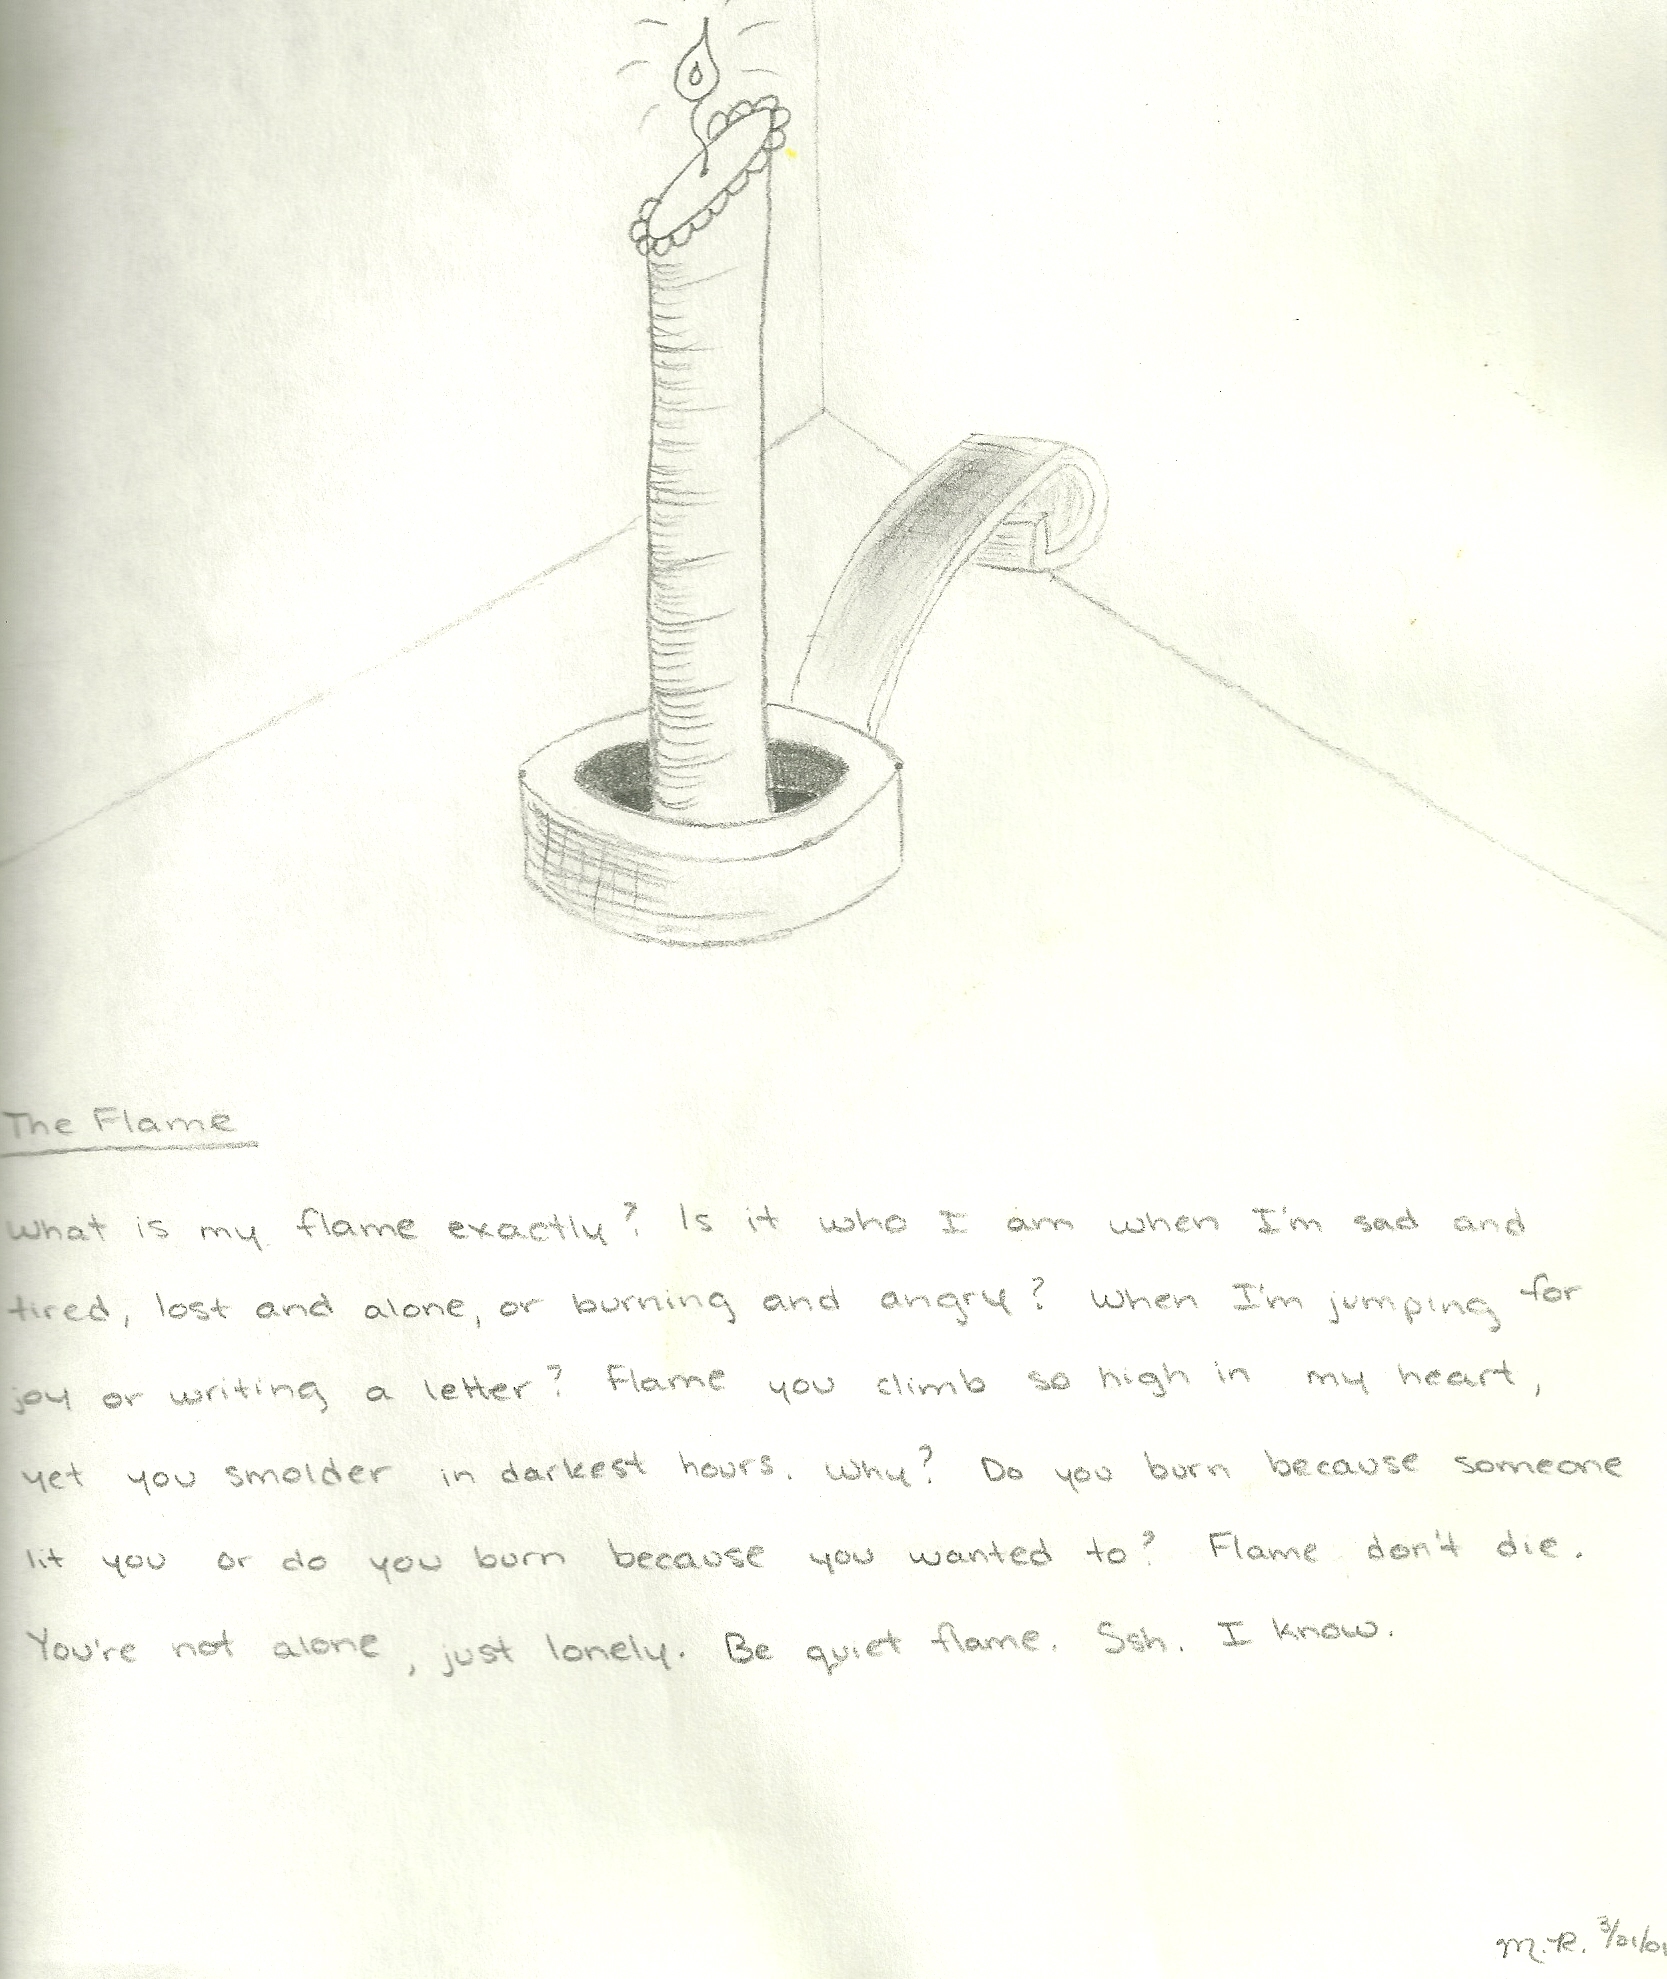 The Flame
What is my flame exactly? Is it who I am when I'm sad and
tired, lost and alone, or burning and angry? When I'm jumping for
joy or writing a letter? Flame you climb so high in my heart,
yet you smolder in darkest hours. Why? Do you burn because someone
lit you or do you burn because you wanted to? Flame don't die.
You're not alone, just lonely. Be quiet flame. Ssh. I know.
M.R. 3/01/01